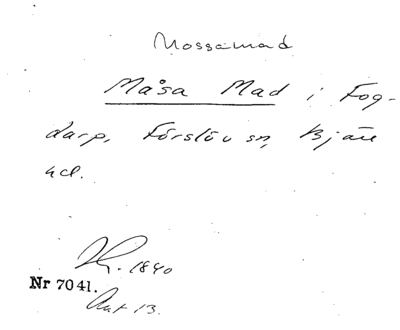 Mossamad
Måsa Mad i Fog-
darp, Förslöv sn, Bjäre
hd.
1840
Nr 7041.
Akt 13.